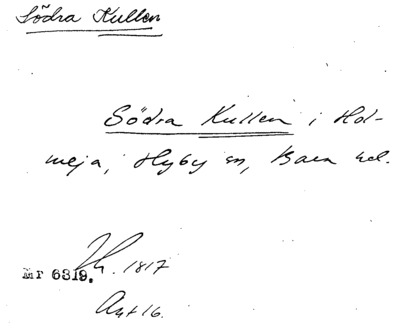 Södra Kullen
Södra Kullen i Hol-
meja, Hyby sn, Bara hd.
Mr 6319. 1817
Akt 16.